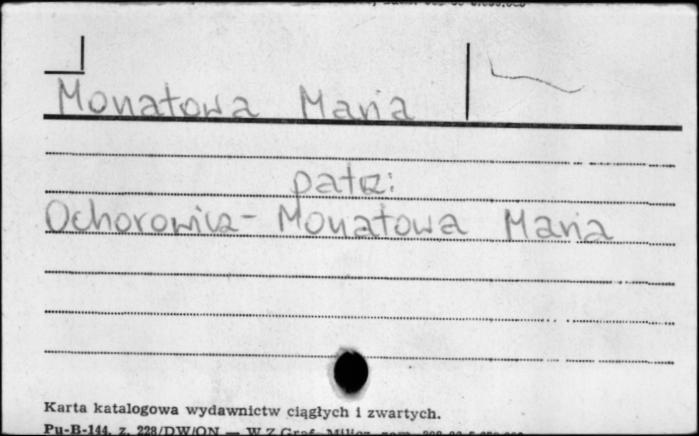 Monatowa Maria
patrz:
Ochorowicz-Monatowa Maria
Karta katalogowa wydawnictw ciągłych i zwartych.
Pu-B-144, z. 228/DW/ON — W.Z.Graf. Milicz, zam.